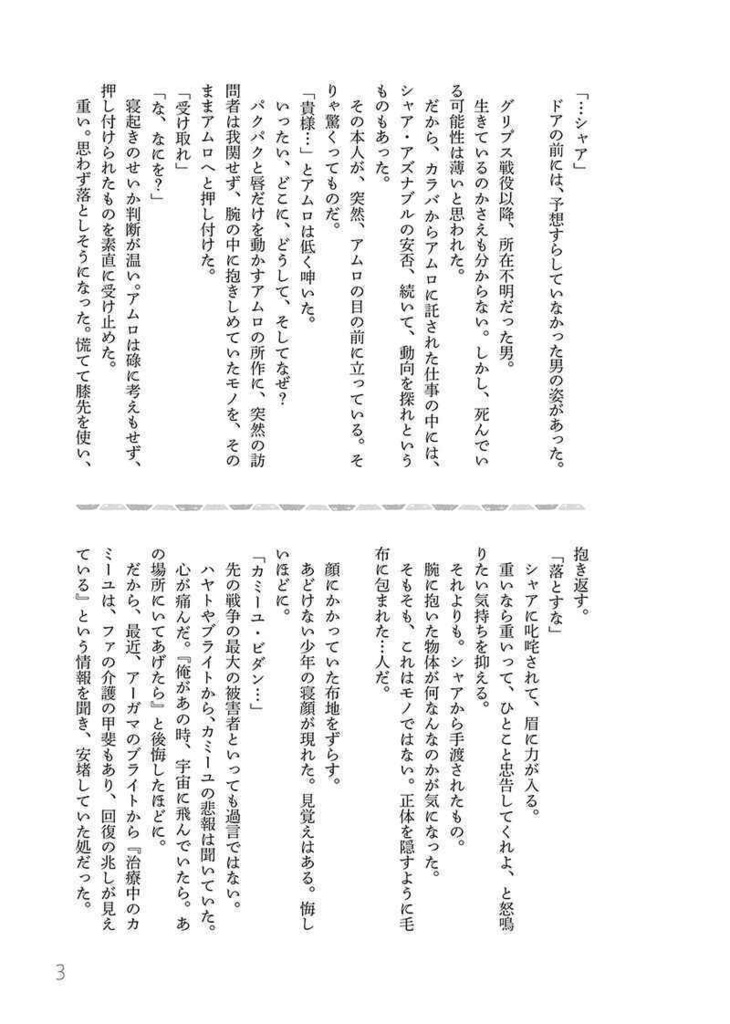 「…シャア」
ドアの前には、予想すらしていなかった男の姿があった。
グリプス戦役以降、所在不明だった男。
生きているのかさえも分からない。しかし、死んでい
る可能性は薄いと思われた。
だから、カラバからアムロに託された仕事の中には、
シャア・アズナブルの安否、続いて、動向を探れという
ものもあった。
その本人が、突然、アムロの目の前に立っている。そ
りゃ驚くってものだ。
「貴様…」とアムロは低く呻いた。
いったい、どこに、どうして、そしてなぜ?
パクパクと唇だけを動かすアムロの所作に、突然の訪
問者は我関せず、腕の中に抱きしめていたモノを、その
ままアムロへと押し付けた。
「受け取れ」
「な、なにを?」
寝起きのせいか判断が温い。アムロは碌に考えもせず、
押し付けられたものを素直に受け止めた。
重い。思わず落としそうになった。慌てて膝先を使い、
抱き返す。
「落とすな」
シャアに叱咤されて、眉に力が入る。
重いなら重いって、ひとこと忠告してくれよ、と怒鳴
りたい気持ちを抑える。
それよりも。シャアから手渡されたもの。
腕に抱いた物体が何なんなのかが気になった。
そもそも、これはモノではない。正体を隠すように毛
布に包まれた…人だ。
顔にかかっていた布地をずらす。
あどけない少年の寝顔が現れた。見覚えはある。悔し
いほどに。
「カミーユ・ビダン…」
先の戦争の最大の被害者といっても過言ではない。
ハヤトやブライトから、カミーユの悲報は聞いていた。
心が痛んだ。『俺があの時、宇宙に飛んでいたら。あ
の場所にいてあげたら』と後悔したほどに。
だから、最近、アーガマのブライトから『治療中のカ
ミーユは、ファの介護の甲斐もあり、回復の兆しが見え
ている』という情報を聞き、安堵していた処だった。
3